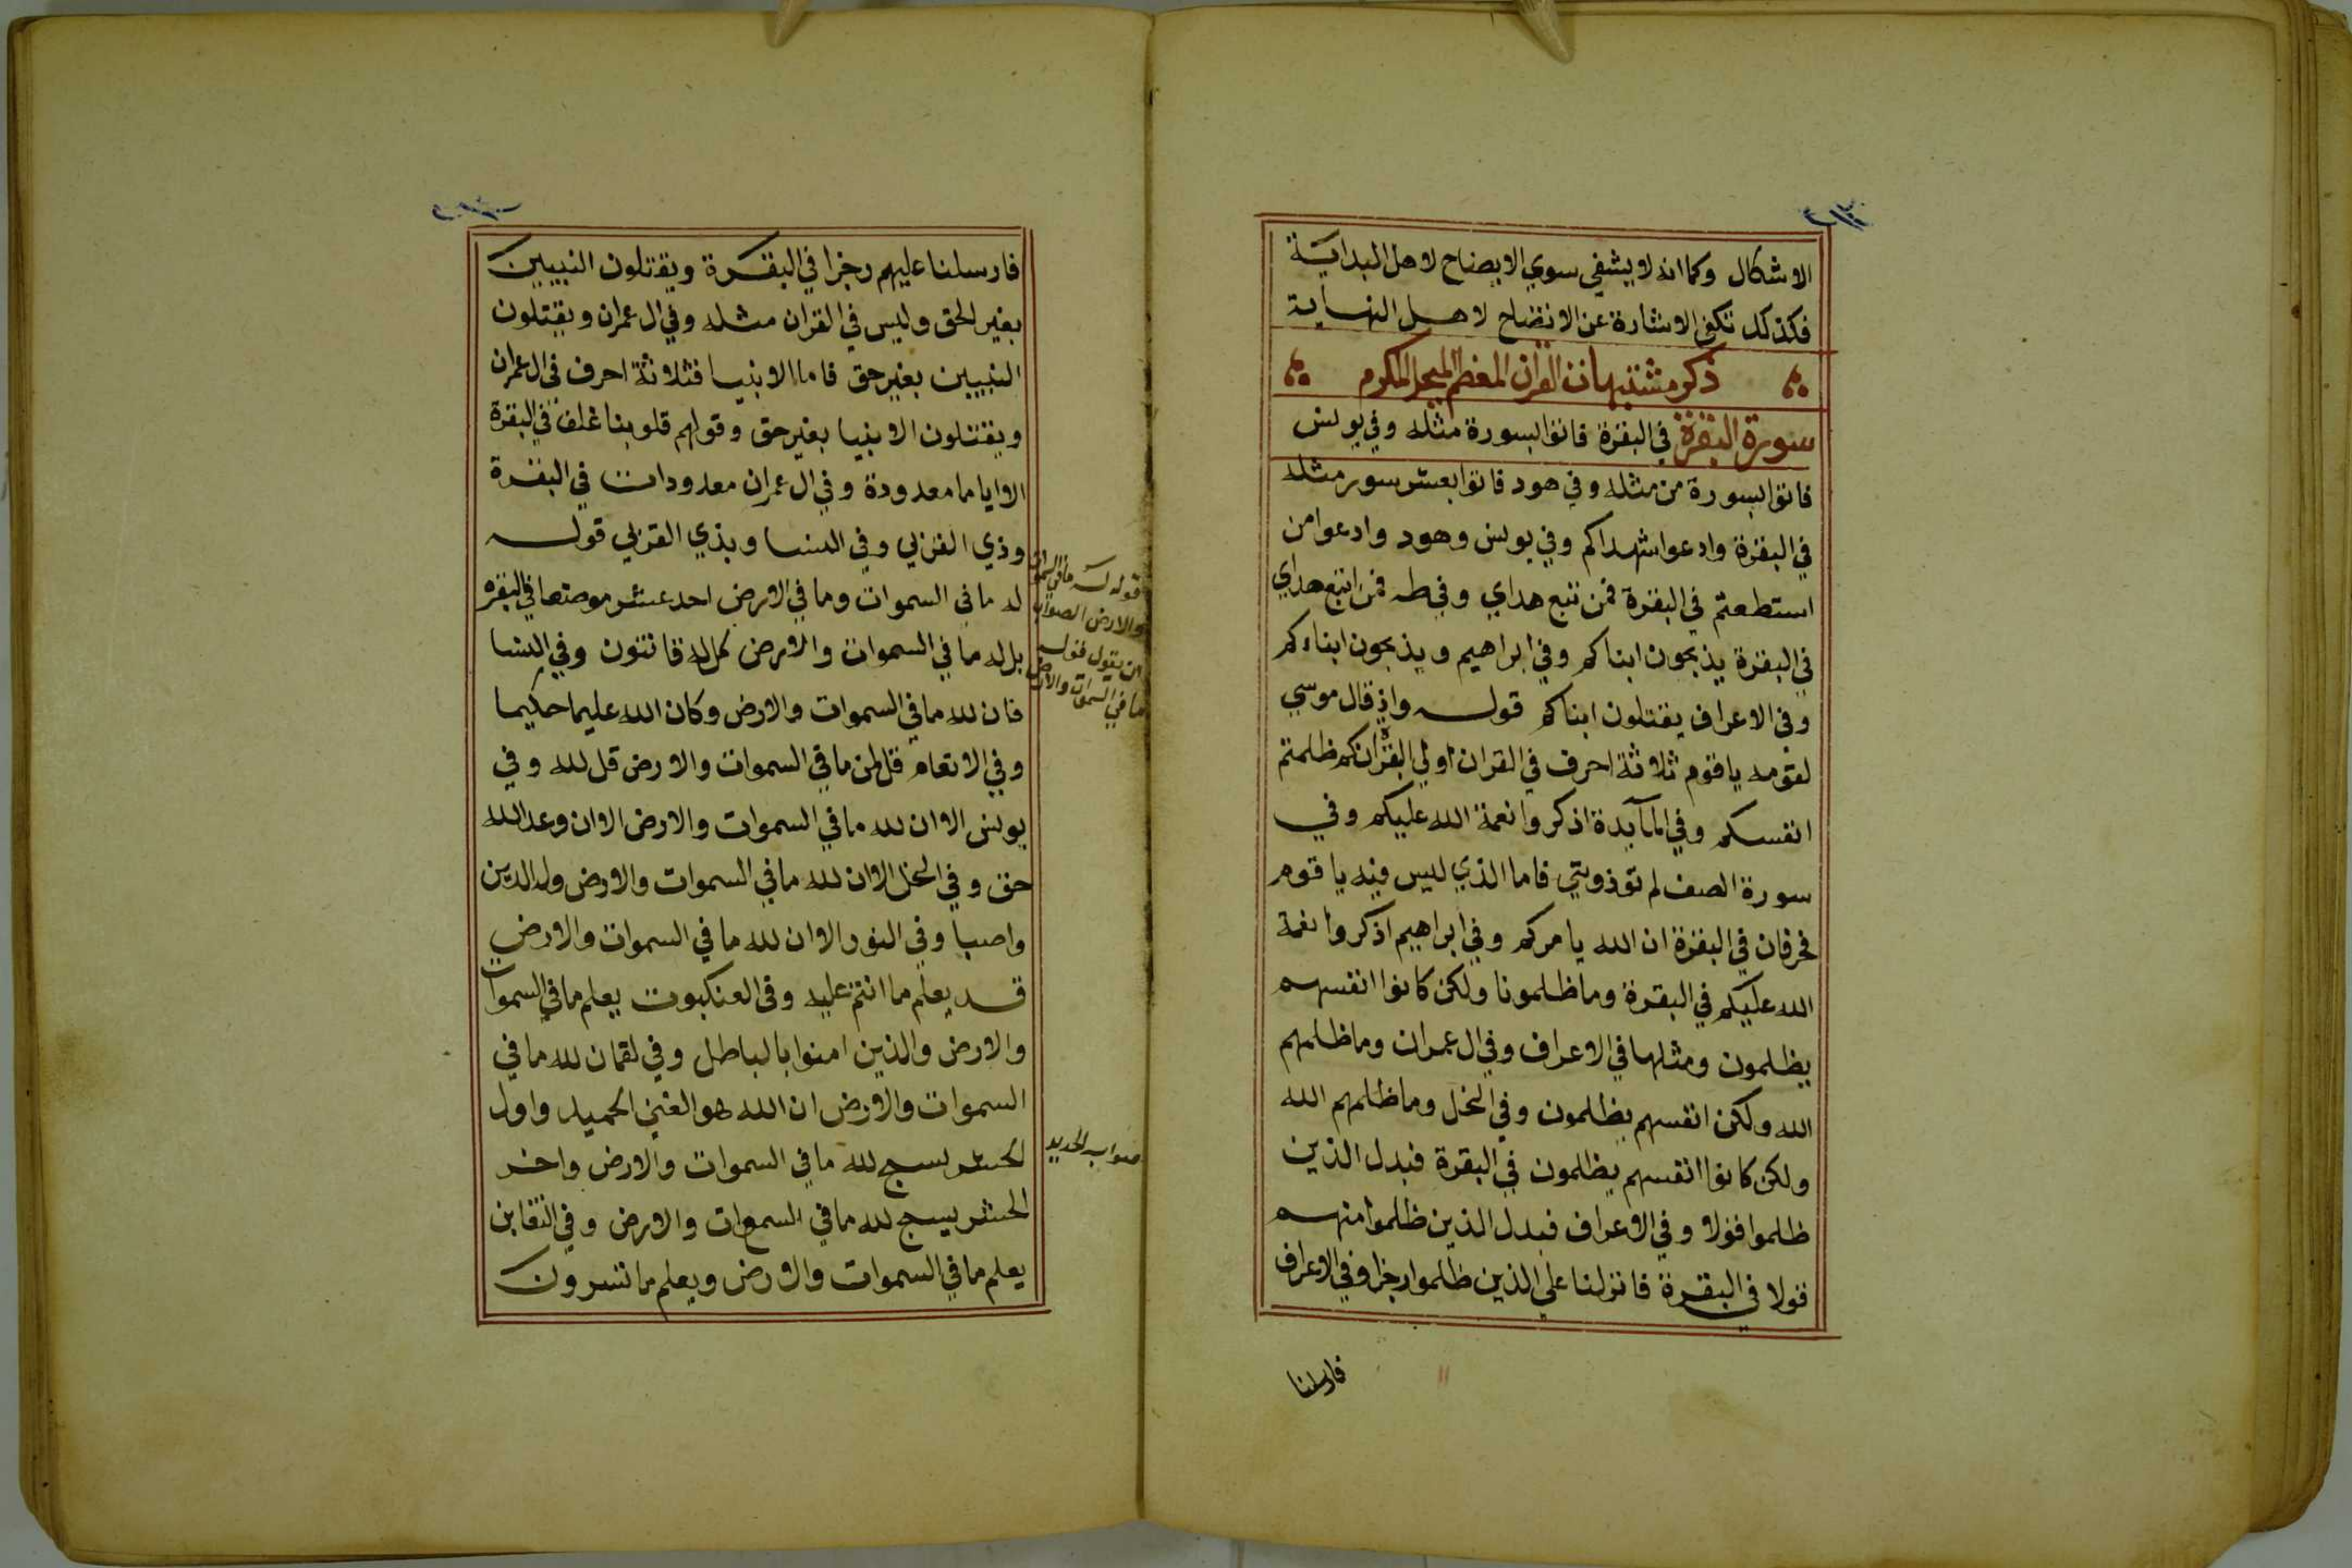 الاشكال وكما انه لا يشفي سوي الايضاح لاهل البداية
فكذلك تكفي الاشارة عن الاتضاح لاهل النهاية
ذكر مشتبهات القران المعظم المبجل المكرم
سورة البقرة في البقرة فاتوا بسورة مثله وفي يونس
فاتوا بسورة من مثله وفي هود فاتوا بعشر سور مثله
في البقرة وادعوا شهداكم وفي يونس وهود وادعوا من
استطعتم في البقرة فمن تبع هداي وفي طه فمن اتبع هداي
في البقرة يذبحون ابناكم وفي ابراهيم ويذبحون ابناءكم
وفي الاعراف يقتلون ابناكم قوله واذ قال موسي
لقومه يا قوم ثلاثة احرف في القران اولي البقرة انكم ظلمتم
انفسكم وفي المآيدة اذكروا نعمة الله عليكم وفي
سورة الصف لم توذونني فاما الذي ليس فيه يا قوم
فحرفان في البقرة ان الله يامركم وفي ابراهيم اذكروا نعمة
الله عليكم في البقرة وما ظلمونا ولكن كانوا انفسهم
يظلمون ومثلها في الاعراف وفي ال عمران وما ظلمهم
الله ولكن انفسهم يظلمون وفي النحل وما ظلمهم الله
ولكن كانوا انفسهم يظلمون في البقرة فبدل الذين
ظلموا قولا وفي الاعراف فبدل الذين ظلموا منهم
قولا في البقرة فانزلنا علي الذين ظلموا رجزا وفي الاعراف
فارسلنا
فارسلنا عليهم رجزا في البقرة ويقتلون النبيين
بغير الحق وليس في القران مثله وفي ال عمران ويقتلون
النبيين بغير حق فاما الانبيا فثلاثة احرف في ال عمران
ويقتلون الانبيا بغير حق وقولهم قلوبنا غلف في البقرة
الا اياما معدودة وفي ال عمران معدودات في البقرة
وذي القربي وفي النسا وبذي القربي قوله
له ما في السموات وما في الارض احد عشر موضعا في البقره
بل له ما في السموات والارض كل له قانتون وفي النسا
فان لله ما في السموات والارض وكان الله عليما حكيما
وفي الانعام قل لمن ما في السموات والارض قل لله وفي
يونس الا ان لله ما في السموات والارض الا ان وعد الله
حق وفي النحل الا ان لله ما في السموات والارض وله الدين
واصبا وفي النور الا ان لله ما في السموات والارض
قد يعلم ما انتم عليه وفي العنكبوت يعلم ما في السموات
والارض والذين امنوا بالباطل وفي لقمان لله ما في
السموات والارض ان الله هو الغني الحميد واول
الحشر يسبح لله ما في السموات والارض واخر
الحشر يسبح لله ما في السموات والارض وفي التغابن
يعلم ما في السموات والارض ويعلم ما تسرون
قوله له ما في السموات
والارض الصواب
ان يقول قوله
ما في السموات والارض
صوابه الحديد